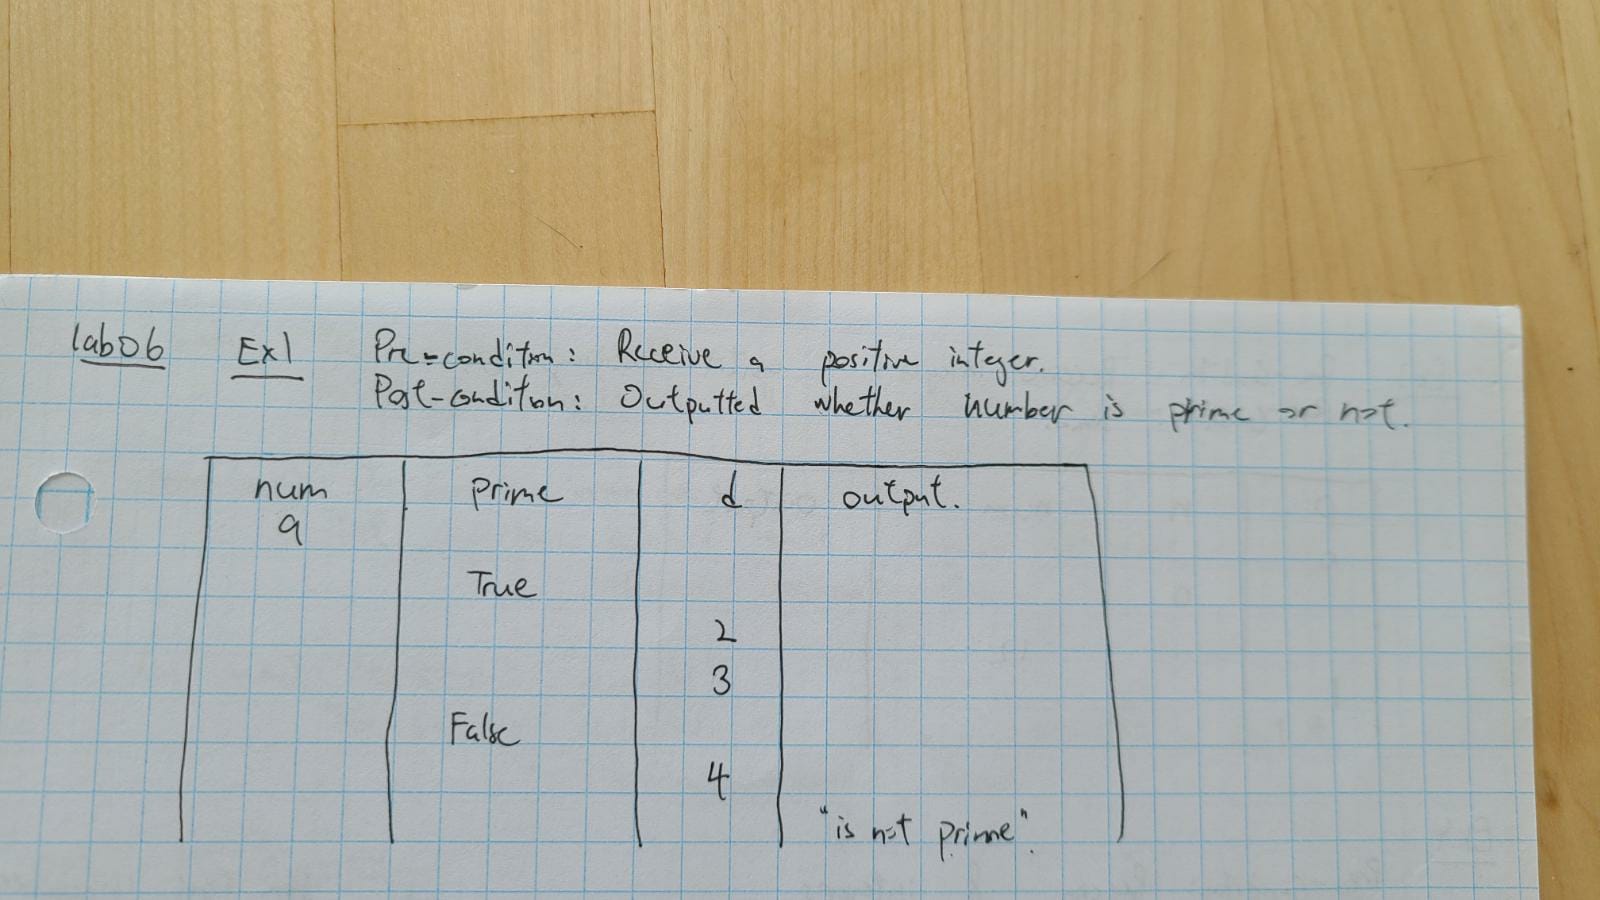 lab06 Ex1 Pre-condition: Receive a positive integer.
Post-condition: Outputted whether number is prime or not.
num prime d output.
9
True
2
3
False
4
"is not prime".